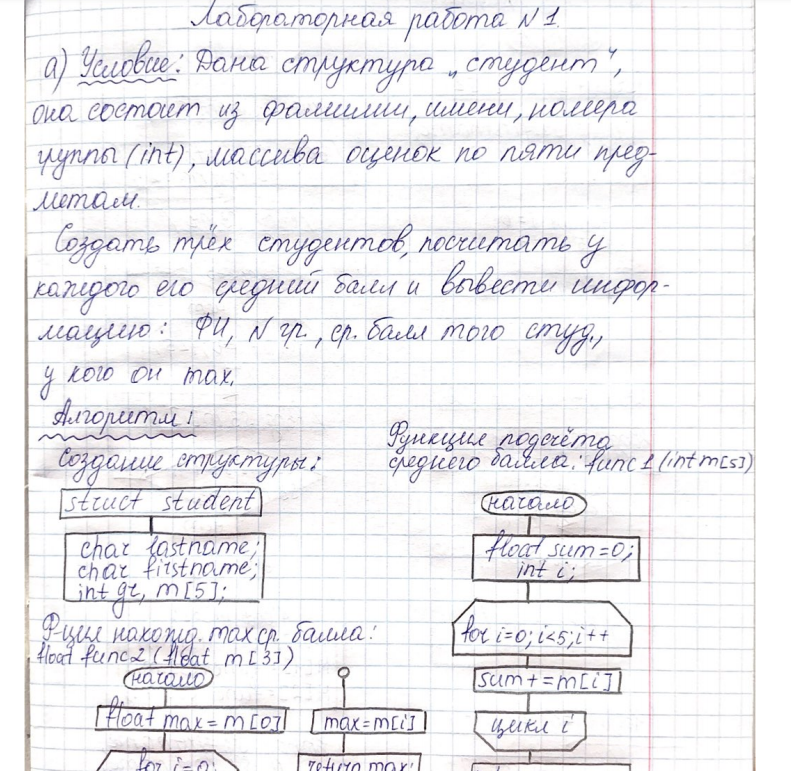 Лабораторная работа N 1.
а) Условие: Дана структура „студент“,
она состоит из фамилии, имени, номера
группы (int), массива оценок по пяти пред-
метам.
Создать трёх студентов, посчитать у
каждого его средний балл и вывести инфор-
мацию: ФИ, N гр., ср. балл того студ.,
у кого он max.
Алгоритм:
Создание структуры:
struct student
char lastname;
char firstname;
int gr, m[5];
Функция подсчёта
среднего балла: func1 (int m[5])
начало
float sum=0;
int i;
for i=0; i<5; i++
sum+=m[i]
цикл i
Ф-ция нахожд. max ср. балла:
float func2 (float m[3])
начало
float max=m[0]
for i=0;
max=m[i]
return max;